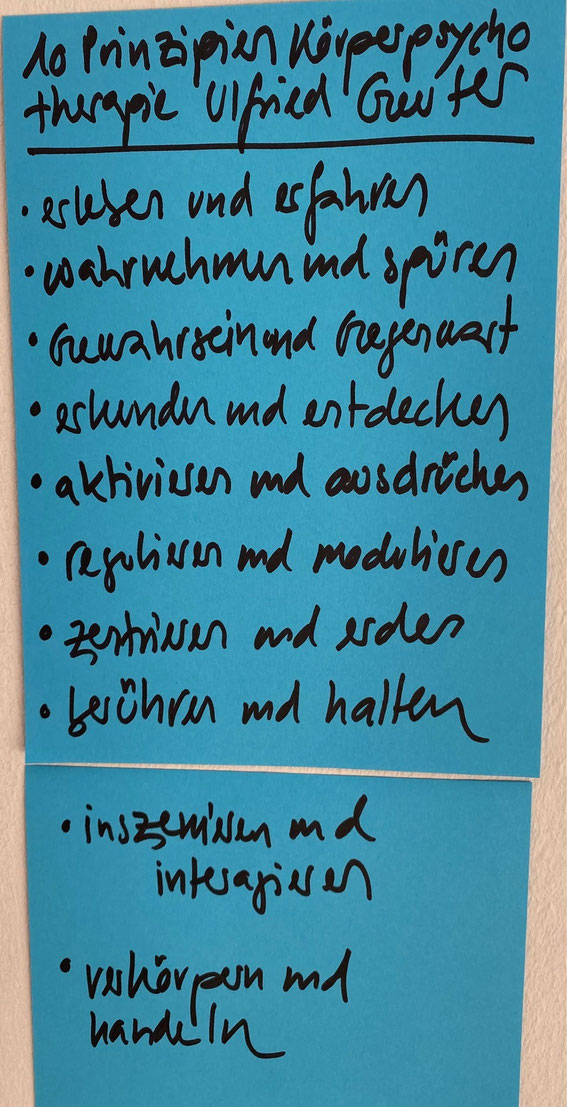 10 Prinzipien Körperpsycho
therapie Ulfried Geuter
• erleben und erfahren
• wahrnehmen und spüren
• Gewahrsein und Gegenwart
• erkunden und entdecken
• aktivieren und ausdrücken
• regulieren und modulieren
• zentrieren und erden
• berühren und halten
• inszenieren und
interagieren
• verkörpern und
handeln